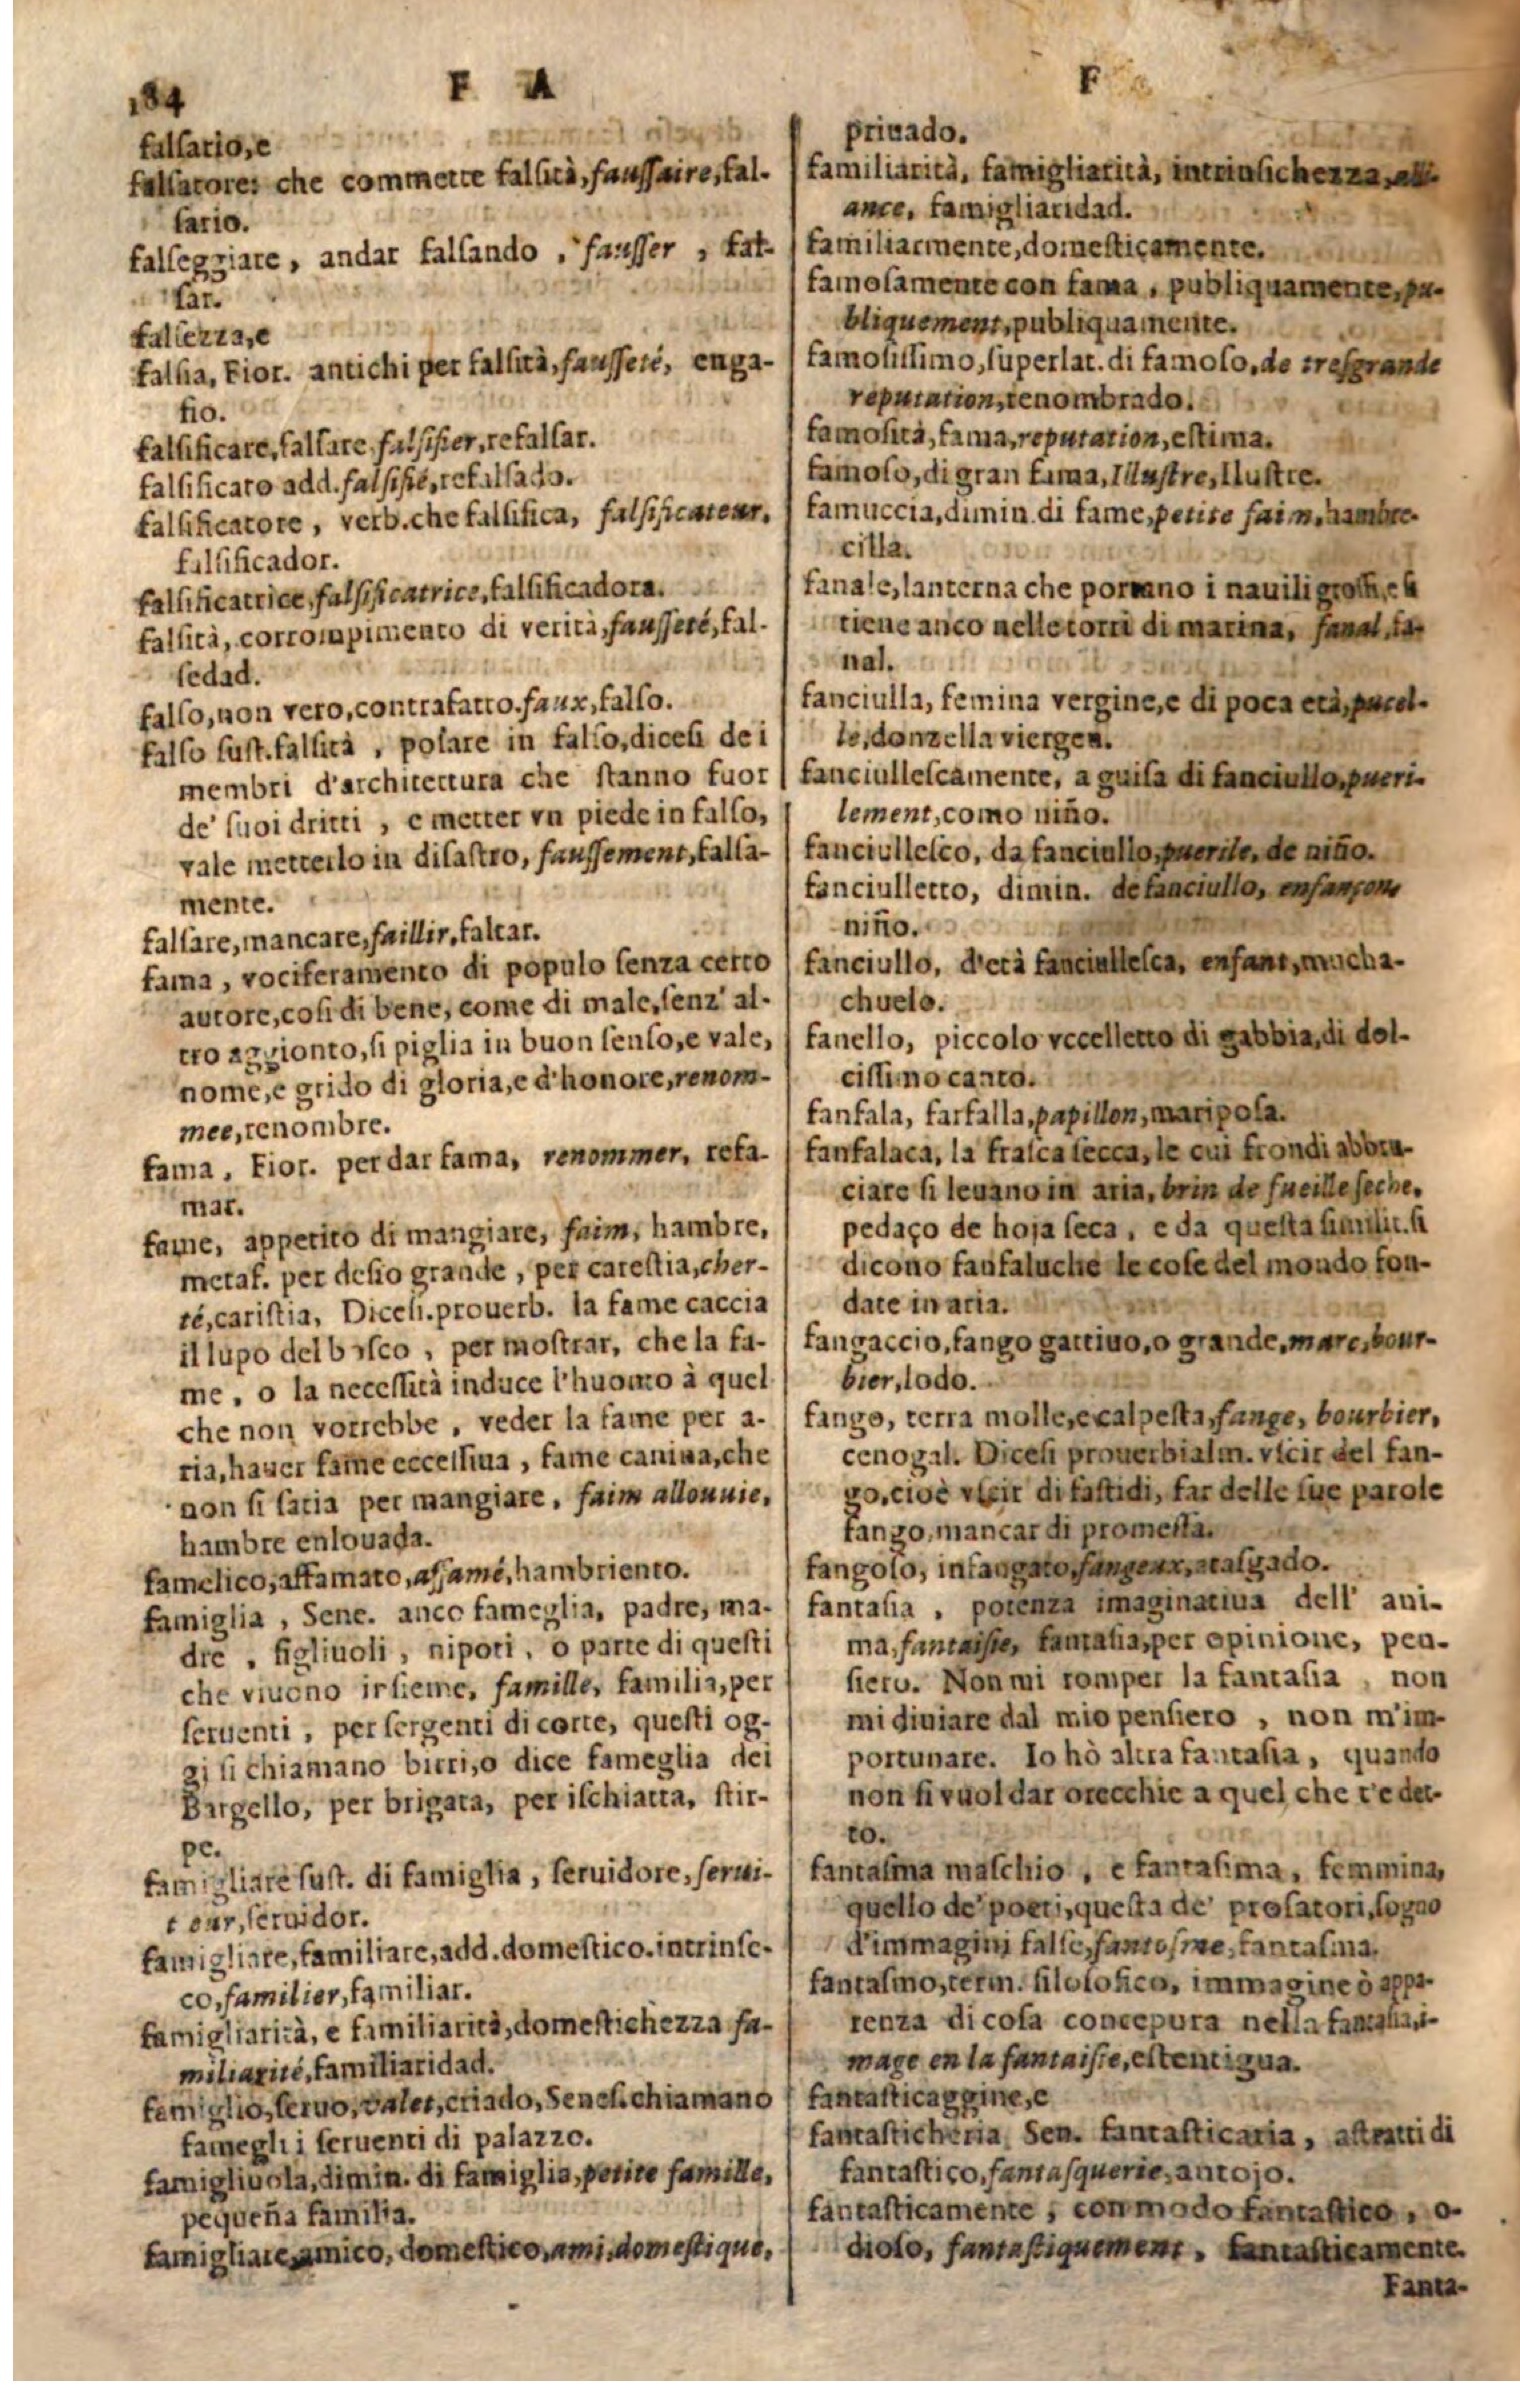 184 F A
falſario,e
falſatore: che commette falſità, fauſſaire, fal-
ſario.
falſeggiare, andar falſando, fauſſer, fal-
ſar.
falſezza,e
falſia, Fior. antichi per falſità, fauſſeté, enga-
ño.
falſificare, falſare, falſifier, refalſar.
falſificato add. falſifié, refalſado.
falſificatore, verb. che falſifica, falſificateur,
falſificador.
falſificatrice, falſificatrice, falſificadora.
falſità, corrompimento di verità, fauſſeté, fal-
ſedad.
falſo, non vero, contrafatto. faux, falſo.
falſo ſuſt. falſità, poſare in falſo, diceſi de i
membri d'architettura che ſtanno fuor
de' ſuoi dritti, e metter vn piede in falſo,
vale metterlo in diſaſtro, fauſſement, falſa-
mente.
falſare, mancare, faillir, faltar.
fama, vociferamento di populo ſenza certo
autore, coſi di bene, come di male, ſenz' al-
tro aggionto, ſi piglia in buon ſenſo, e vale,
nome, e grido di gloria, e d'honore, renom-
mee, renombre.
fama, Fior. per dar fama, renommer, refa-
mar.
fame, appetito di mangiare, faim, hambre,
metaf. per deſio grande, per careſtia, cher-
té, cariſtia, Diceſi. prouerb. la fame caccia
il lupo del boſco, per moſtrar, che la fa-
me, o la neceſſità induce l'huomo à quel
che non vorrebbe, veder la fame per a-
ria, hauer fame ecceſſiua, fame canina, che
non ſi ſatia per mangiare, faim allouuie,
hambre enlouada.
famelico, affamato, affamé, hambriento.
famiglia, Sene. anco fameglia, padre, ma-
dre, figliuoli, nipoti, o parte di queſti
che viuono inſieme, famille, familia, per
ſeruenti, per ſergenti di corte, queſti og-
gi ſi chiamano birri, o dice fameglia dei
Bargello, per brigata, per iſchiatta, ſtir-
pe.
famigliare ſuſt. di famiglia, ſeruidore, ſerui-
teur, ſeruidor.
famigliare, familiare, add. domeſtico. intrinſe-
co, familier, familiar.
famigliarità, e familiarità, domeſtichezza fa-
miliarité, familiaridad.
famiglio, ſeruo, valet, criado, Seneſ. chiamano
famegli i ſeruenti di palazzo.
famigliuola, dimin. di famiglia, petite famille,
pequeña familia.
famigliare, amico, domeſtico, ami, domeſtique,
F
priuado.
familiarità, famigliarità, intrinſichezza, alli-
ance, famigliaridad.
familiarmente, domeſticamente.
famoſamente con fama, publiquamente, pu-
bliquement, publiquamente.
famoſiſſimo, ſuperlat. di famoſo, de treſgrande
reputation, renombrado.
famoſità, fama, reputation, eſtima.
famoſo, di gran fama, Illuſtre, Iluſtre.
famuccia, dimin. di fame, petite faim, hambre-
cilla.
fanale, lanterna che portano i nauili groſſi, e ſi
tiene anco nelle torri di marina, fanal, fa-
nal.
fanciulla, femina vergine, e di poca età, pucel-
le, donzella viergen.
fanciulleſcamente, a guiſa di fanciullo, pueri-
lement, como niño.
fanciulleſco, da fanciullo, puerile, de niño.
fanciulletto, dimin. de fanciullo, enfançon,
niño.
fanciullo, d'età fanciulleſca, enfant, mucha-
chuelo.
fanello, piccolo vccelletto di gabbia, di dol-
ciſſimo canto.
fanfala, farfalla, papillon, maripoſa.
fanfalaca, la fraſca ſecca, le cui frondi abbru-
ciare ſi leuano in aria, brin de fueille ſeche,
pedaço de hoja ſeca, e da queſta ſimilit. ſi
dicono fanfaluche le coſe del mondo fon-
date in aria.
fangaccio, fango gattiuo, o grande, marc, bour-
bier, lodo.
fango, terra molle, e calpeſta, fange, bourbier,
cenogal. Diceſi prouerbialm. vſcir del fan-
go, cioè vſcir di faſtidi, far delle ſue parole
fango, mancar di promeſſa.
fangoſo, infangato, fangeux, ataſgado.
fantaſia, potenza imaginatiua dell' ani-
ma, fantaiſie, fantaſia, per opinione, pen-
ſiero. Non mi romper la fantaſia, non
mi diuiare dal mio penſiero, non m'im-
portunare. Io hò altra fantaſia, quando
non ſi vuol dar orecchie a quel che t'e det-
to.
fantaſma maſchio, e fantaſima, femmina,
quello de' poeti, queſta de' proſatori, ſogno
d'immagini falſe, fantoſme, fantaſma.
fantaſmo, term. filoſofico, immagine ò appa-
renza di coſa concepura nella fantaſia, i-
mage en la fantaiſie, eſtentigua.
fantaſticaggine, e
fantaſticheria, Sen. fantaſticaria, aſtratti di
fantaſtico, fantaſquerie, antojo.
fantaſticamente, con modo fantaſtico, o-
dioſo, fantaſtiquement, fantaſticamente.
Fanta-